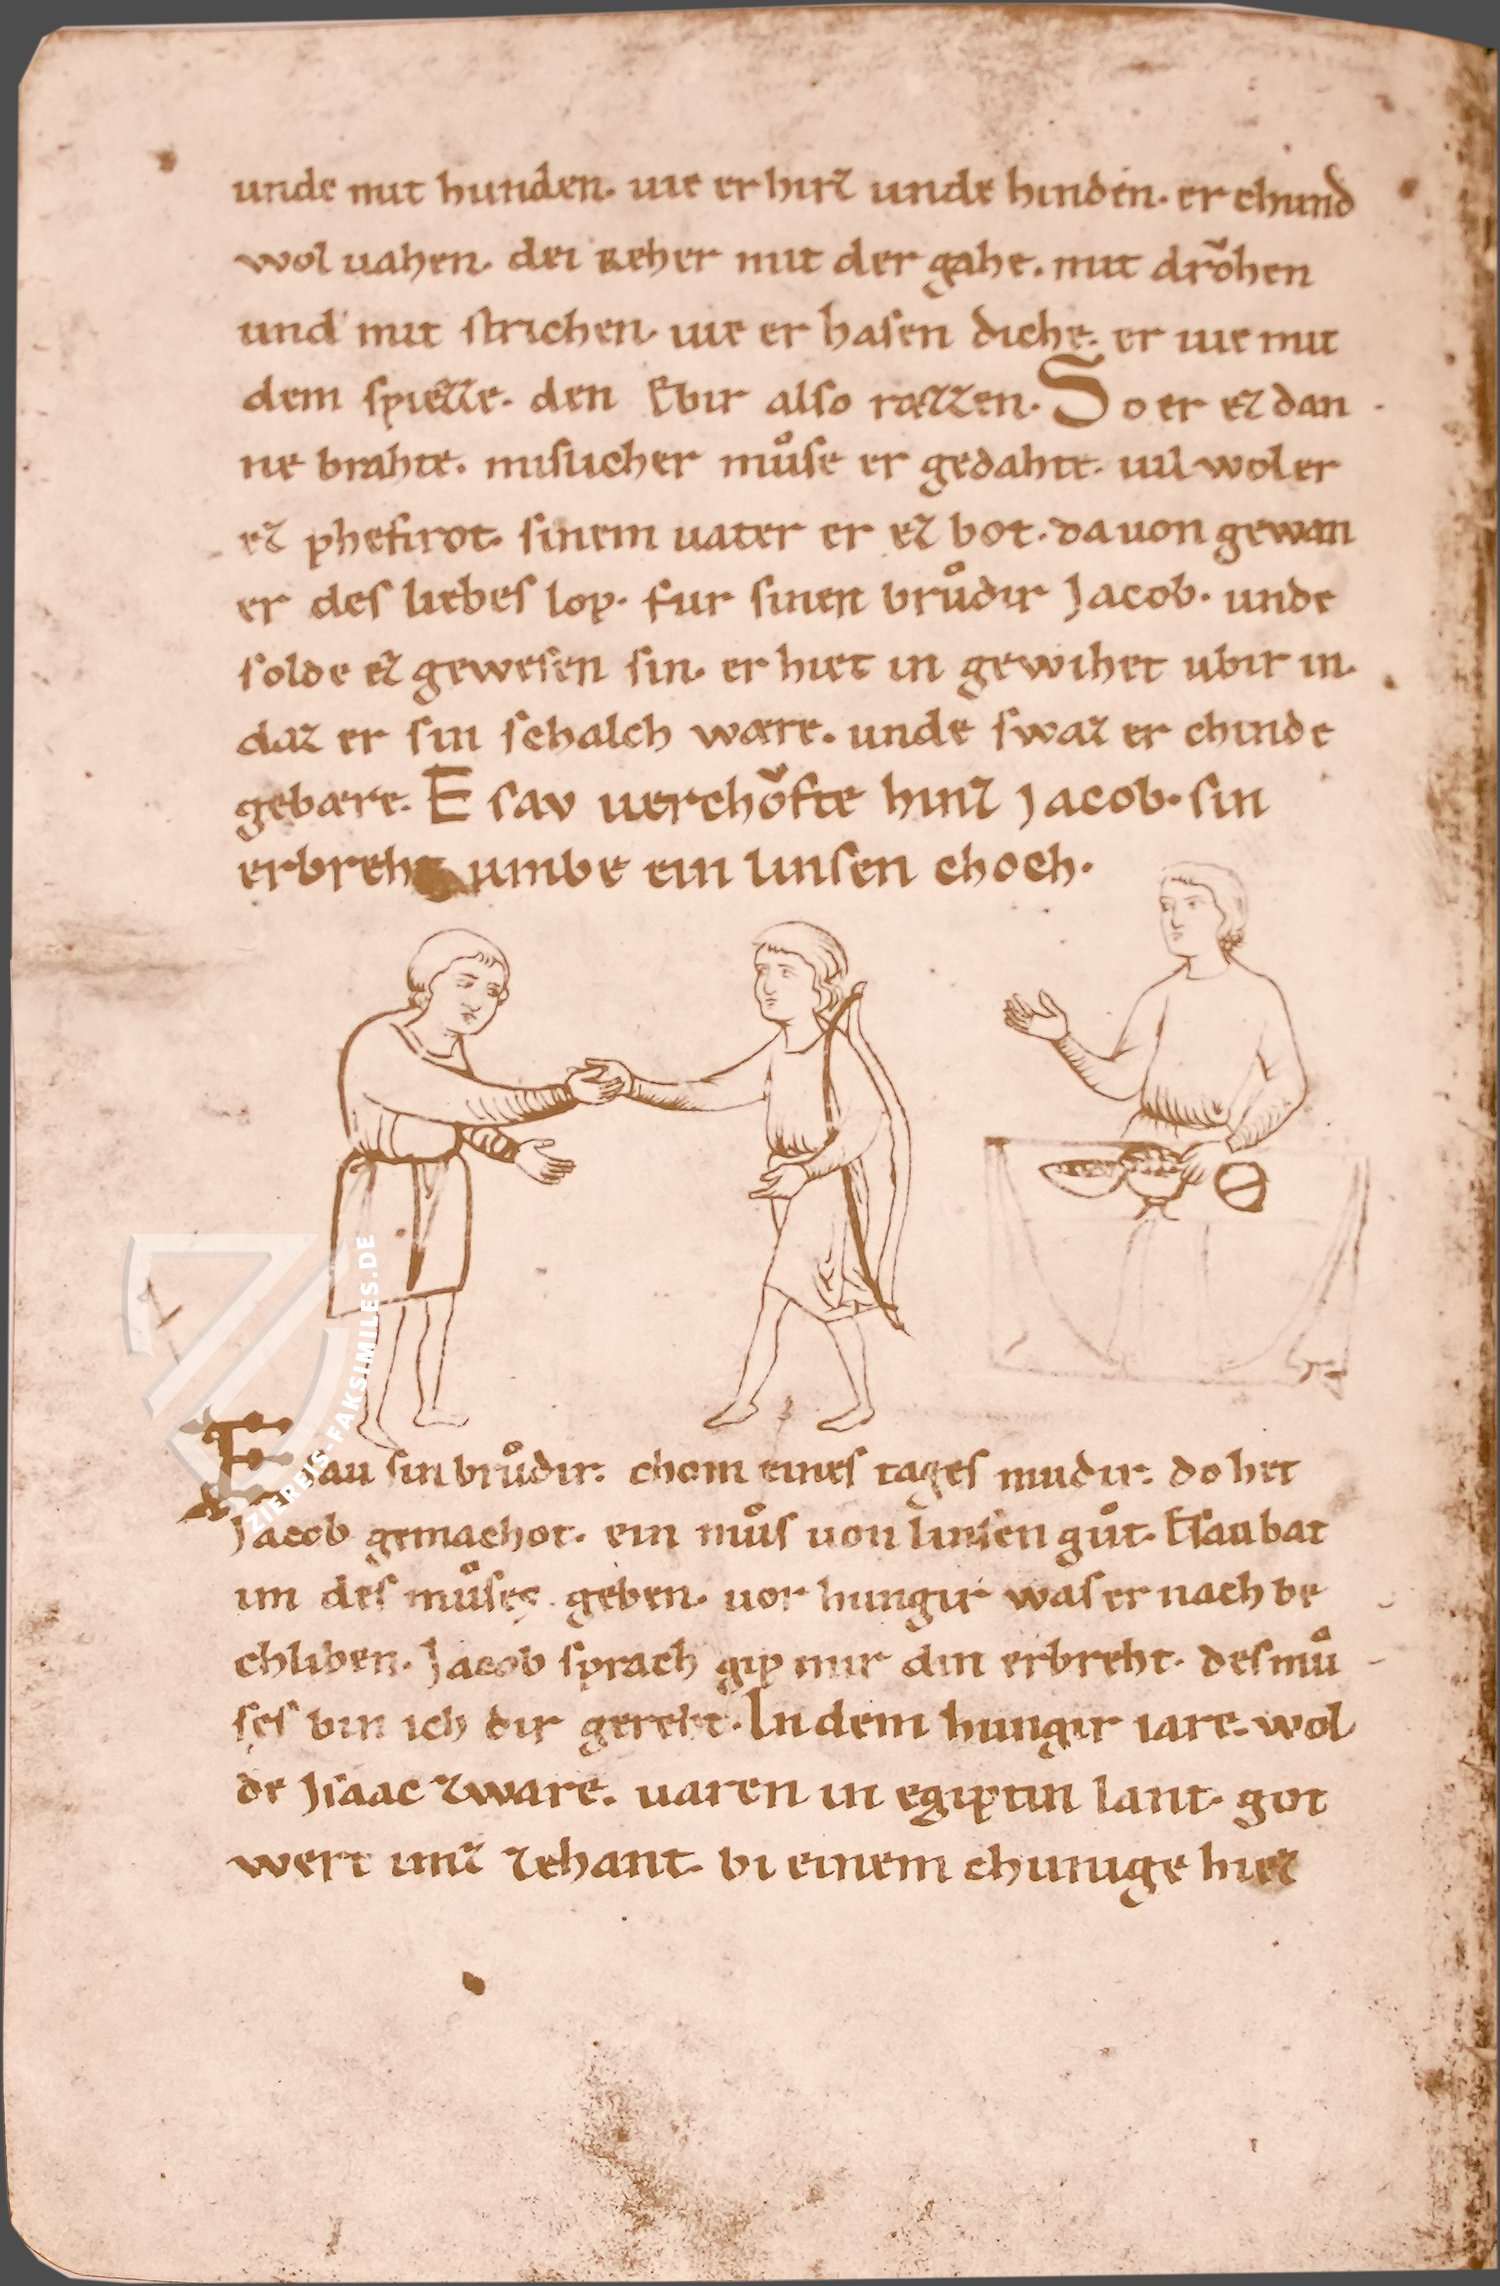 unde mit hunden. uie er hirz unde hinden. er chund
wol uahen. dei Reher mit der gahe. mit drǒhen
und mit strichen. uie er hasen diche. er uie mit
dem spiezze. den Ebir also ræzzen. So er ez dan
ne brahte. mislicher můse er gedahte. uil wol er
ez phefirot. sinem uater er ez bot. da uon gewan
er des liebes lop. fur sinen brůdir Jacob. unde
solde ez gewesen sin. er hiet in gewihet ubir in.
daz er sin schalch wære. unde swaz er chinde
gebære. Esav uerchǒfte hinz Jacob. sin
erbreht umbe ein linsen choch.
Esau sin brůdir. chom eines tages mudir. do het
Jacob gemachot. ein můs uon linsen gůt. Esau bat
im des můses geben. uor hungir was er nach be
chliben. Jacob sprach gip mir din erbreht. des mů
ses bin ich dir gereht. In dem hungir iare. wol
de Jsaac zware. uaren in egiptin lant. got
wert imz zehant. bi einem chunige hiez
ZIEREIS-FAKSIMILES.DE